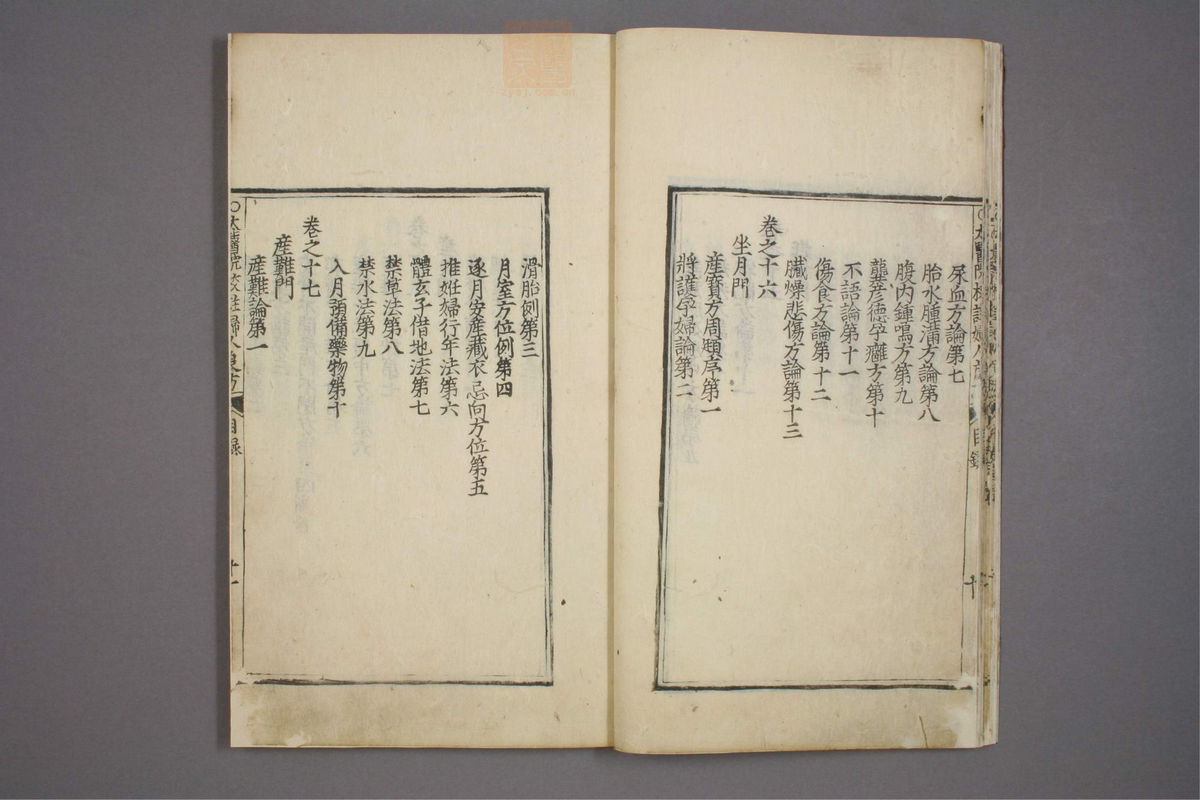 尿血方論第七
胎水腫滿方論第八
腹內鍾鳴方第九
龔彥德孕癰方第十
不語論第十一
傷食方論第十二
臟燥悲傷方論第十三
卷之十六
坐月門
產寶方周頲序第一
將護孕婦論第二
滑胎例第三
月室方位例第四
逐月安產藏衣忌向方位第五
推姙婦行年法第六
體玄子借地法第七
禁草法第八
禁水法第九
入月預備藥物第十
卷之十七
產難門
產難論第一
目錄
十一
目錄
十